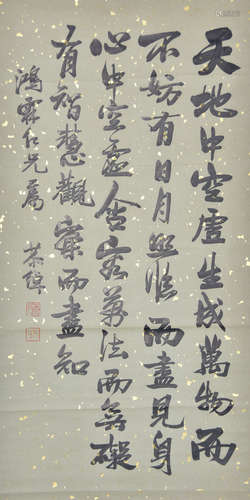 天地中空虛生成萬物而
不妨有日月照臨而盡見身
心中空虛含容萬法而無礙
有智慧觀察而盡知
鴻霖仁兄屬